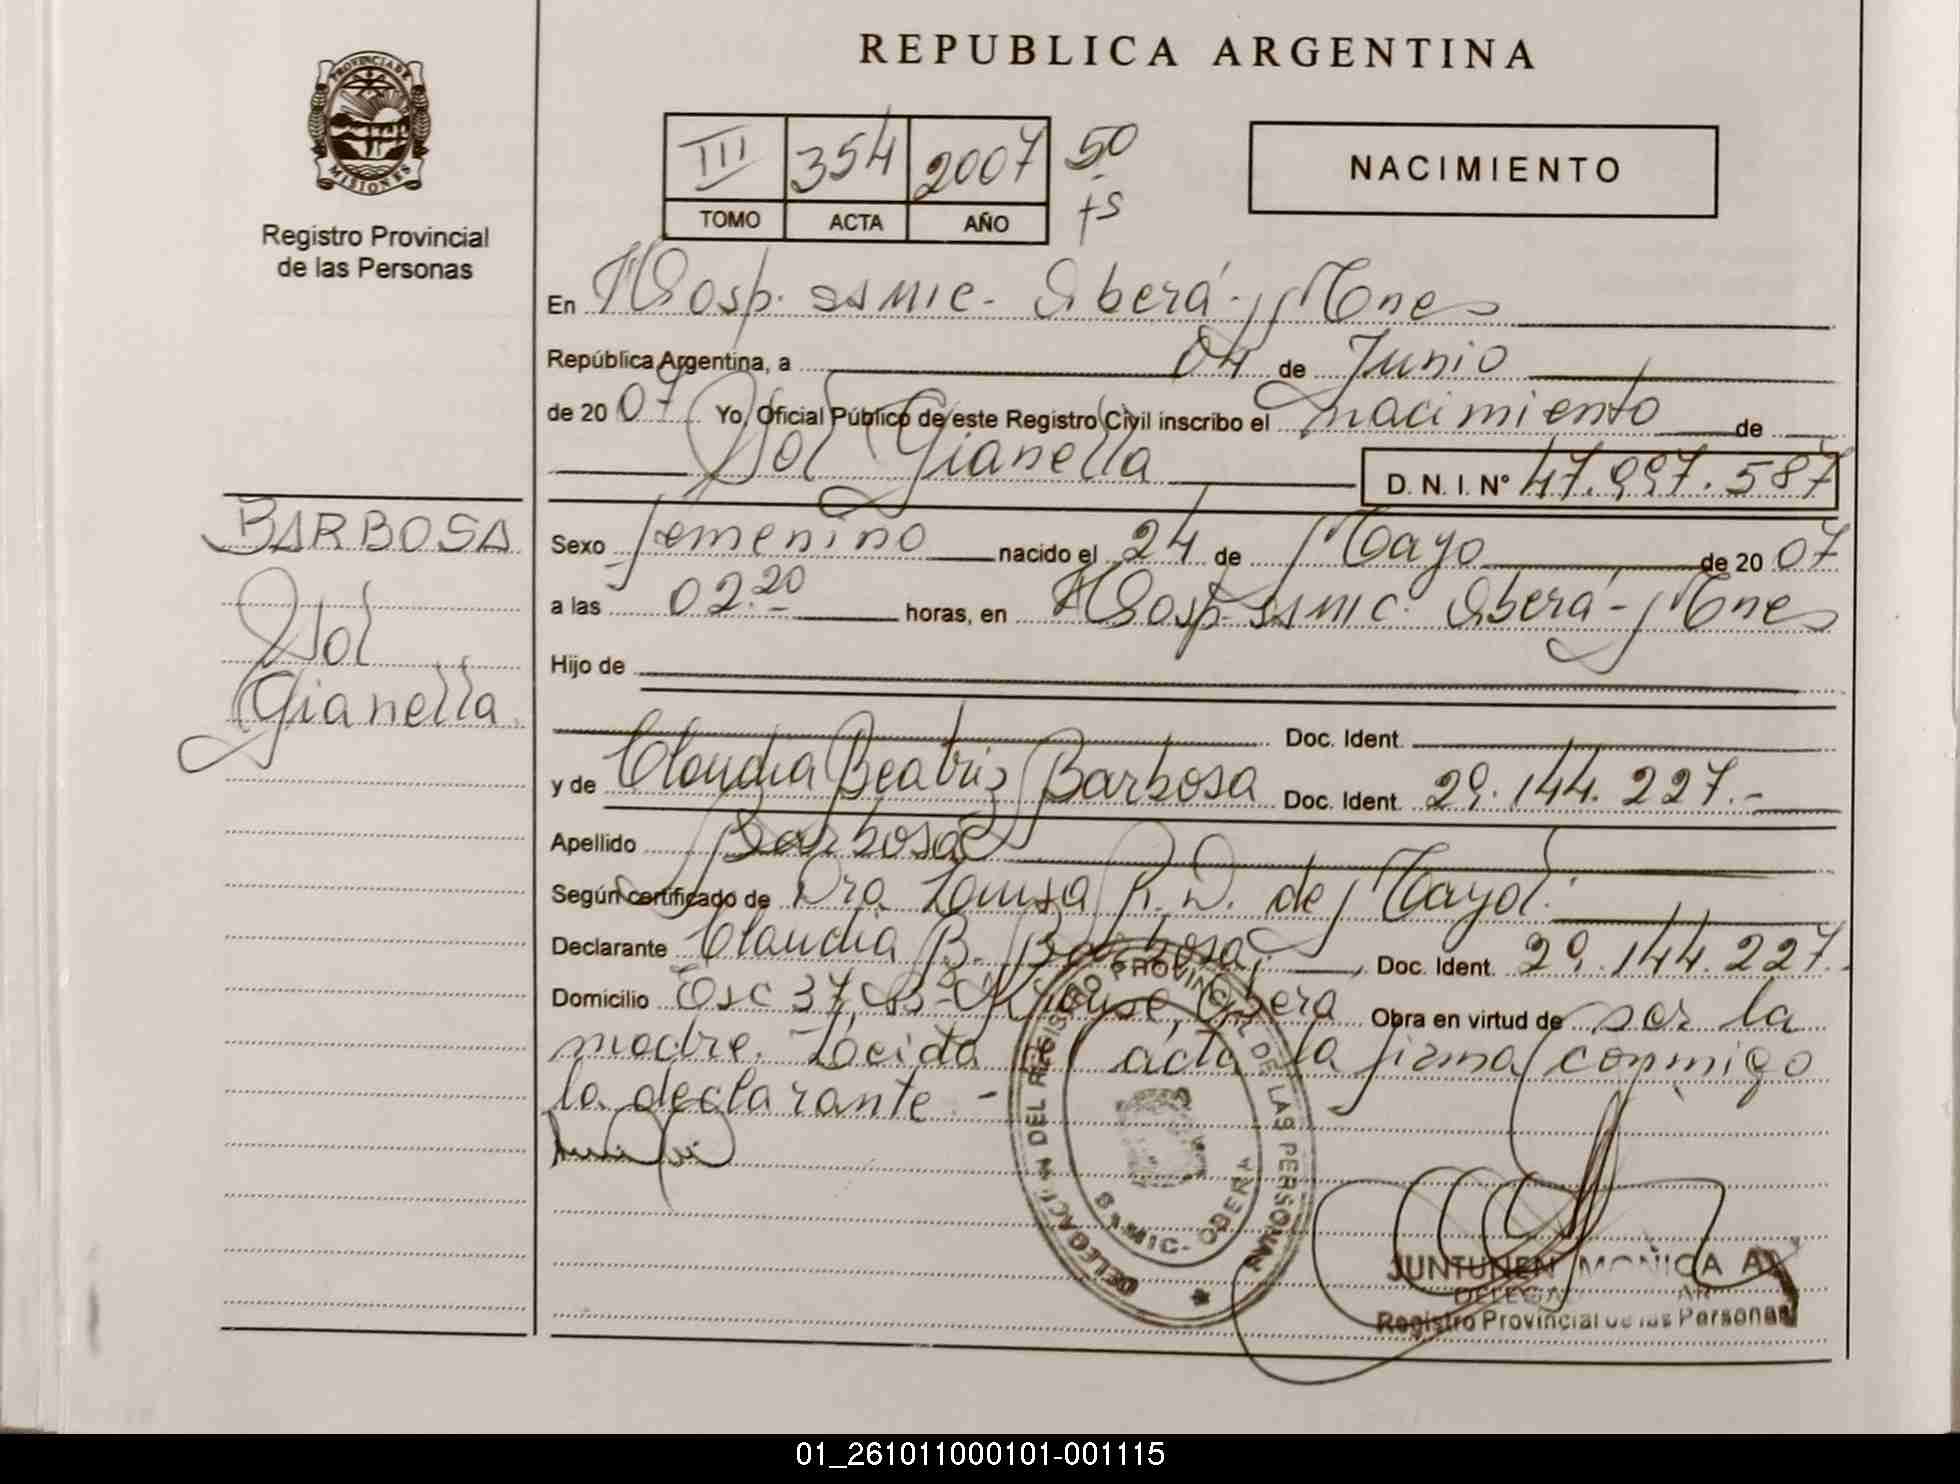 REPUBLICA ARGENTINA
PROVINCIA DE MISIONES
Registro Provincial
de las Personas
III 354 2007 50
TOMO ACTA AÑO fs
NACIMIENTO
En Hosp. SAMIC - Oberá - Mnes
República Argentina, a 04 de Junio
de 2007 Yo, Oficial Público de este Registro Civil inscribo el nacimiento de
Sol Gianella D. N. I. N° 47.997.587
BARBOSA
Sol
Gianella
Sexo femenino nacido el 24 de Mayo de 2007
a las 02.20 horas, en Hosp. SAMIC. Oberá - Mnes
Hijo de
Doc. Ident.
y de Claudia Beatriz Barbosa Doc. Ident. 29.144.227.-
Apellido Barbosa
Según certificado de Dra Louisa R. D. de Mayol.
Declarante Claudia B. Barbosa, Doc. Ident. 29.144.227.
Domicilio Esc 37, Bº Oberá Obra en virtud de ser la
madre. Leída acta la firma conmigo
la declarante -
DELEGACION DEL REGISTRO PROVINCIAL DE LAS PERSONAS
SAMIC - OBERA
JUNTUNEN MONICA A
DELEGA
Registro Provincial de las Personas
01_261011000101-001115